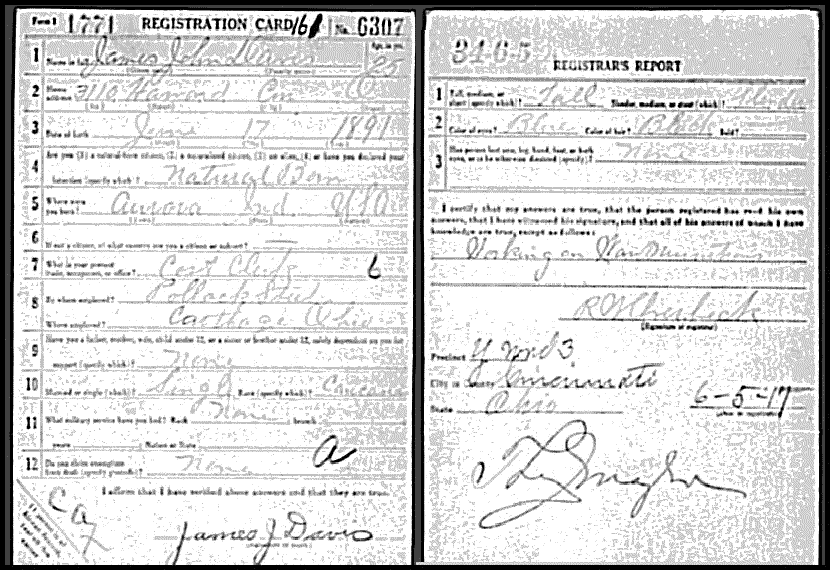 Form 1 1771 REGISTRATION CARD No. 6307
1 Name in full James John Davis Age, in yrs. 25
(Given name) (Family name)
2 Home address 3110 Cin O
3 Date of birth June 17 1891
4 Are you (1) a natural-born citizen, (2) a naturalized citizen, (3) an alien, (4) or have you declared your
intention (specify which)? Natural Born
5 Where were you born? Aurora Ind. USA
6 If not a citizen, of what country are you a citizen or subject?
7 What is your present trade, occupation, or office? Cost Clerk
8 By whom employed? Pollack Steel
Where employed? Carthage Ohio
9 Have you a father, mother, wife, child under 12, or a sister or brother under 12, solely dependent on you for
support (specify which)? None
10 Married or single (which)? Single Race (specify which)? Caucasian
11 What military service have you had? Rank None branch
years Nation or State
12 Do you claim exemption from draft (specify grounds)? None
A
I affirm that I have verified above answers and that they are true.
James J Davis
(Signature or mark)
3165
REGISTRAR'S REPORT
1 Tall, medium, or short (specify which)? Tall Slender, medium, or stout (which)? Slender
2 Color of eyes? Blue Color of hair? Black Bald?
3 Has person lost arm, leg, hand, foot, or both eyes, or is he otherwise disabled (specify)? None
I certify that my answers are true, that the person registered has read his own
answers, that I have witnessed his signature, and that all of his answers of which I have
knowledge are true, except as follows:
Working on War Munitions
(Signature of registrar)
Precinct Y Wrd 3
City or County Cincinnati
State Ohio
6-5-17
(Date of registration)